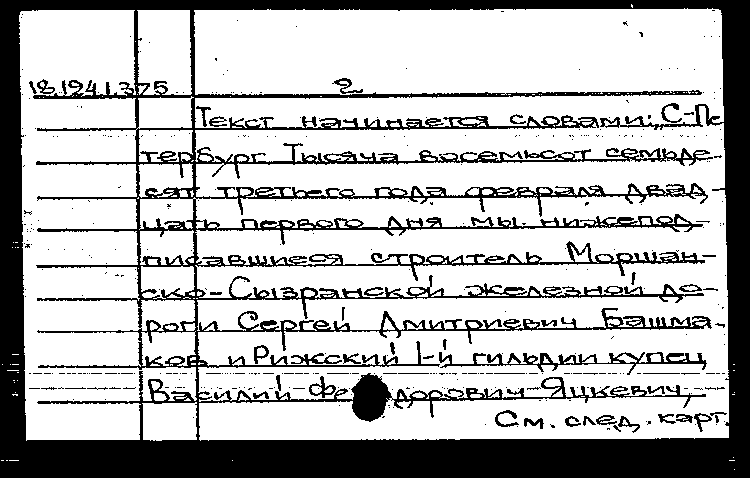 18.1941.375 2
Текст начинается словами: „С-Пе
тербург Тысяча восемьсот семьде-
сят третьего года февраля двад-
цать первого дня мы нижепод-
писавшиеся строитель Моршан-
ско-Сызранской железной до-
роги Сергей Дмитриевич Башма-
ков и Рижский 1-й гильдии купец
Василий Федорович Яцкевич,
См. след. карт.